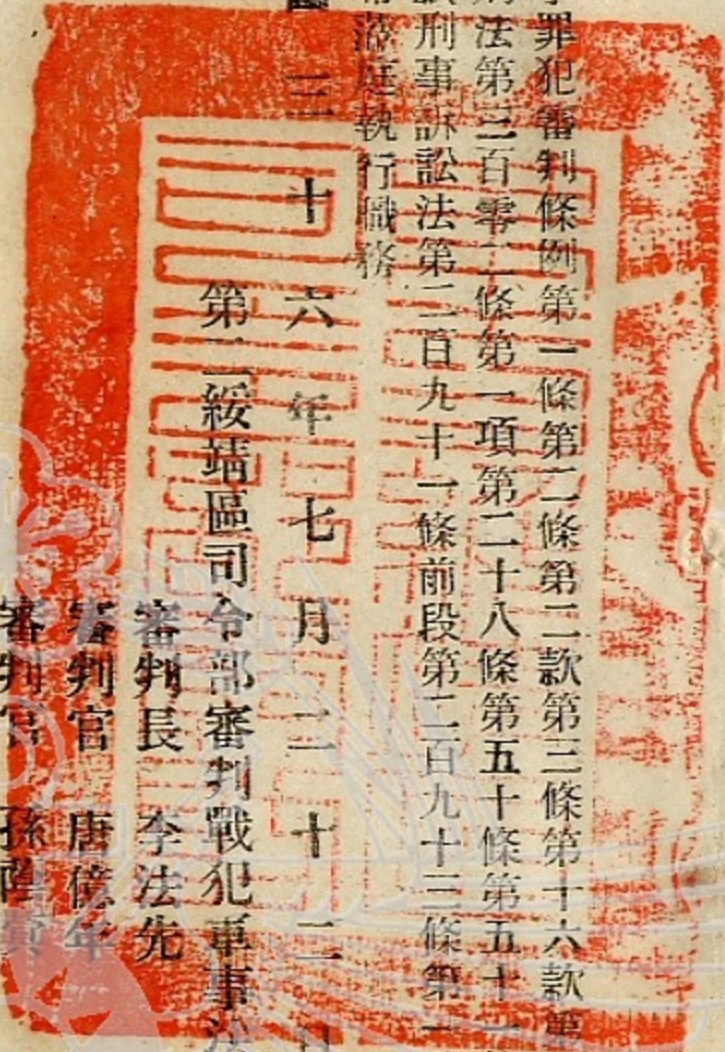 罪犯審判條例第一條第二條第二款第三條第十六款第
法第三百零二條第一項第二十八條第五十條第五十一
刑事訴訟法第二百九十一條前段第二百九十三條第一
蒞庭執行職務
三十六年七月二十二日
第二綏靖區司令部審判戰犯軍事法
審判長 李法先
審判官 唐億年
審判官 孫